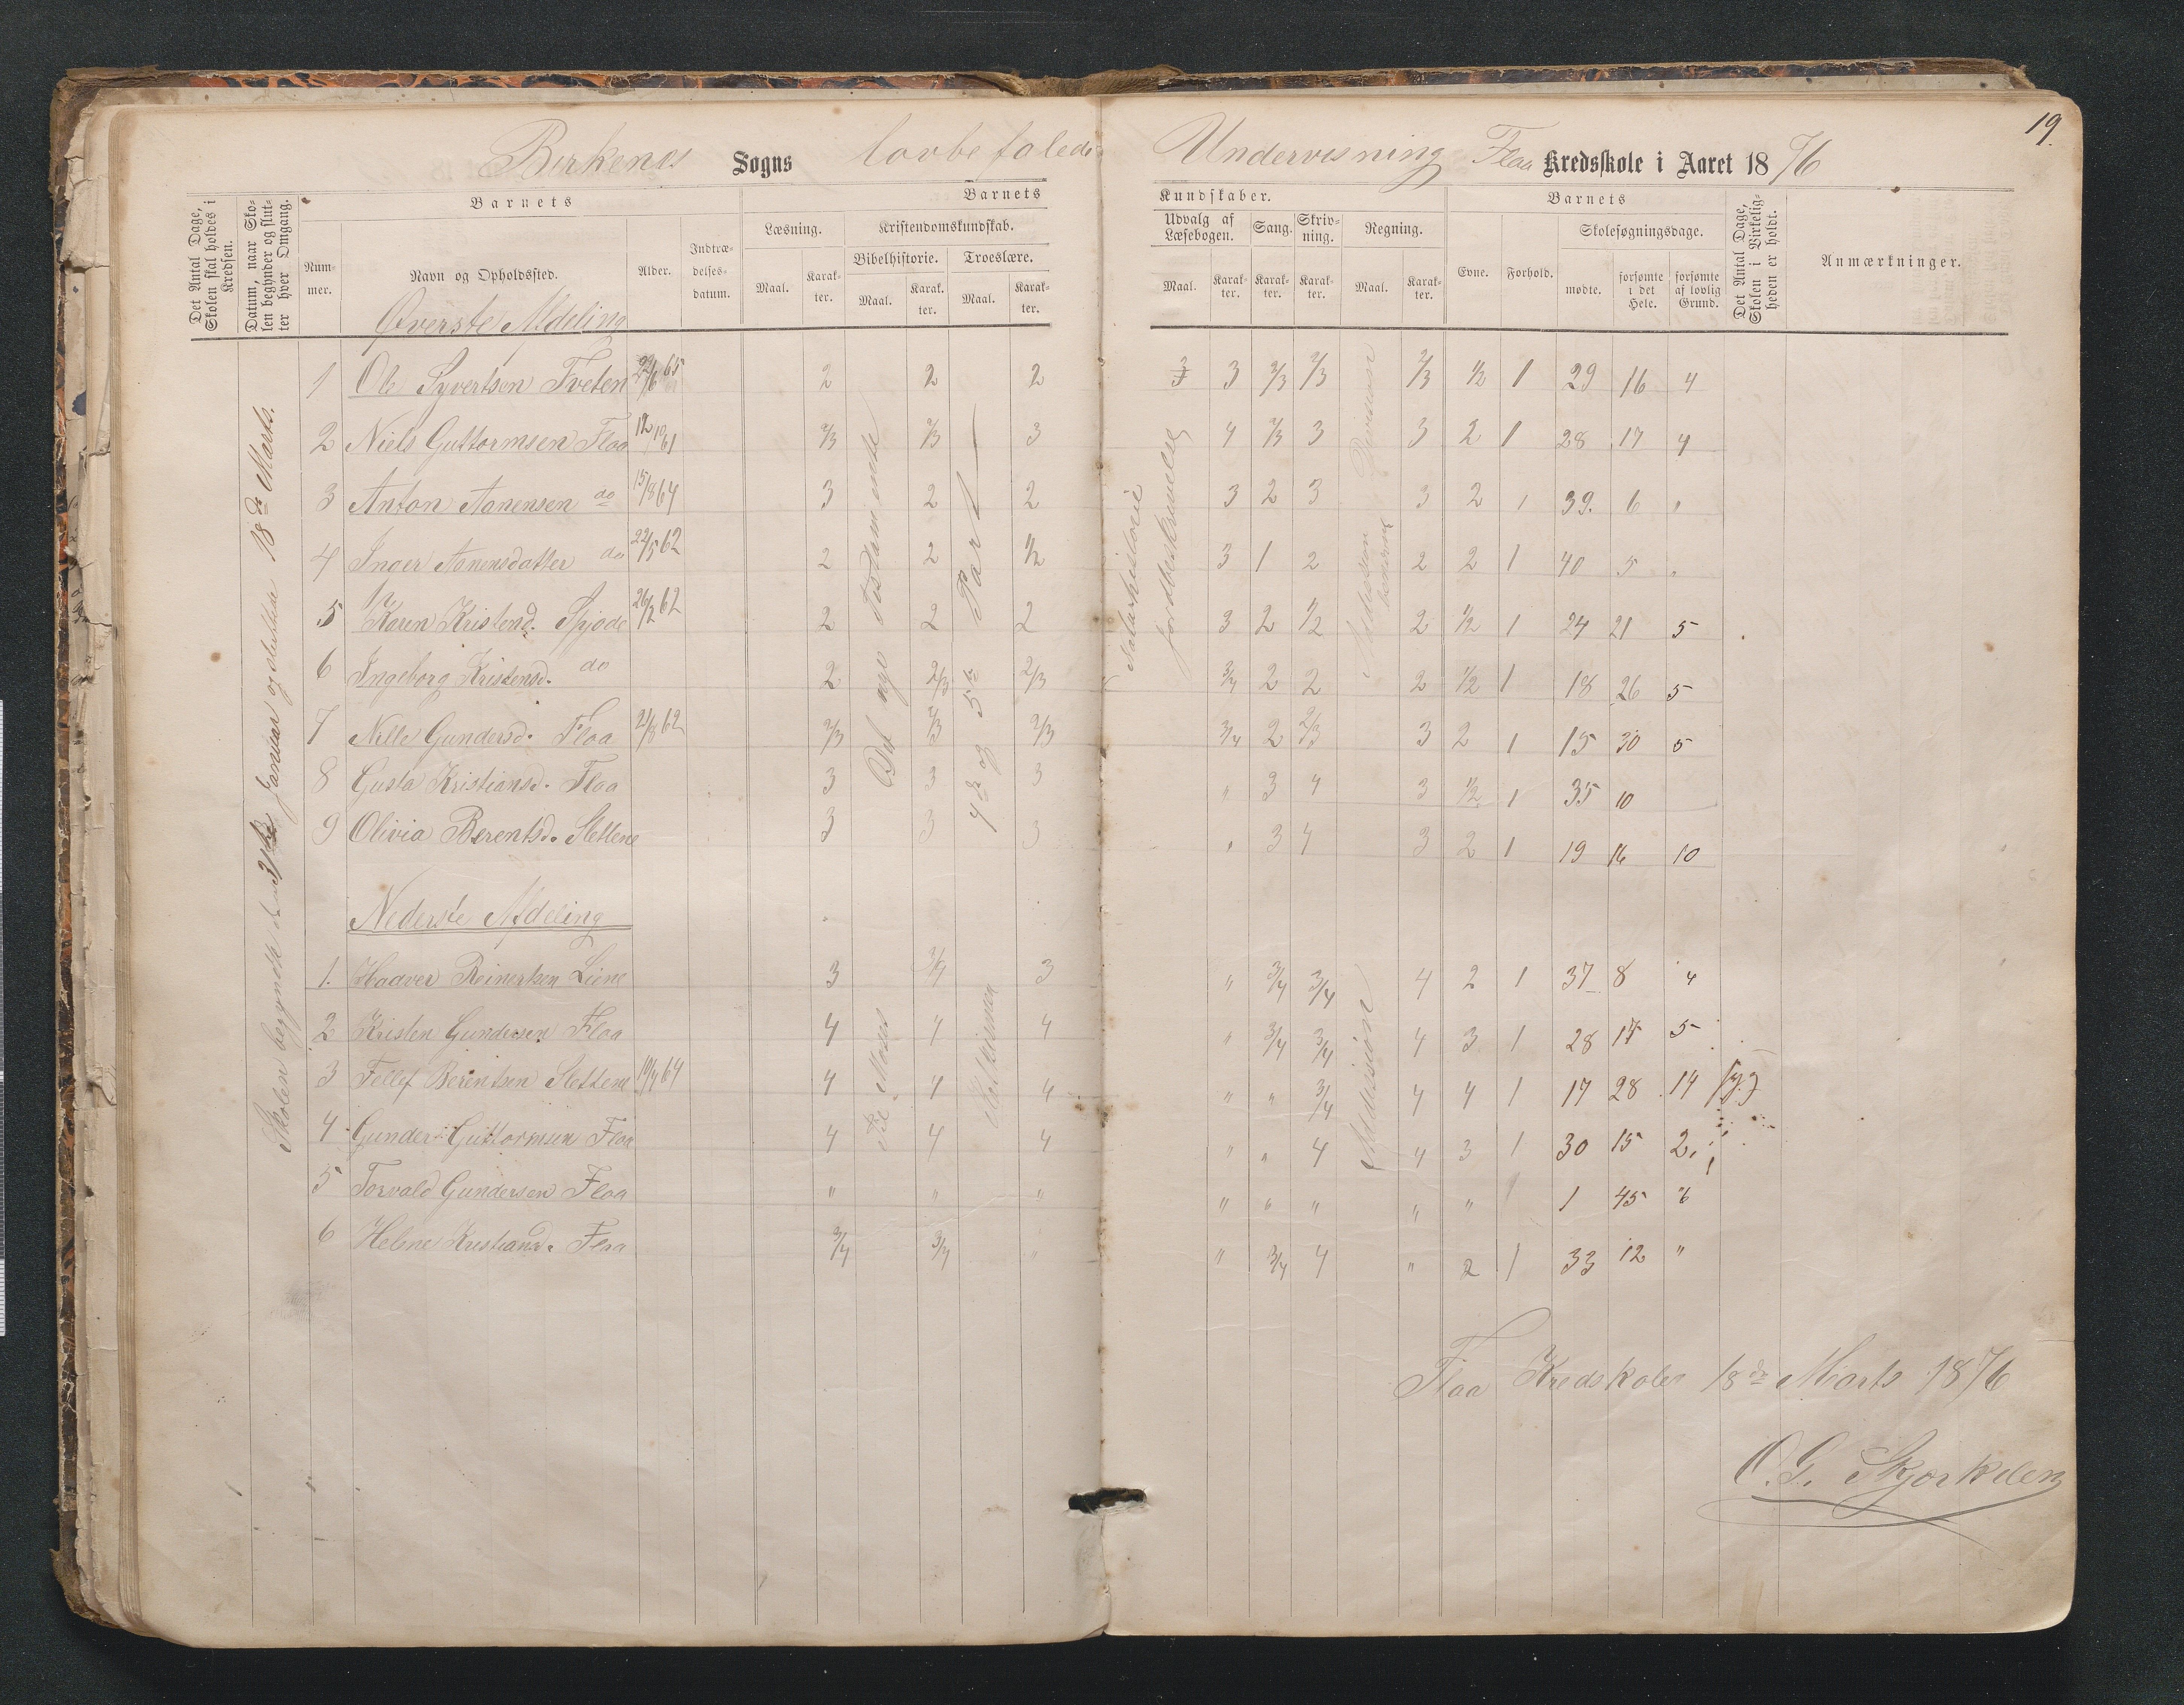 19.
Birkenes Sogns lovbefalede Undervisning Flaa Kredsskole i Aaret 1876
Det Antal Dage, Skolen skal holdes i Kredsen.
Datum, naar Skolen begynder og slutter hver Omgang.
Barnets
Barnets
Kundskaber.
Barnets
Det Antal Dage, Skolen i Virkeligheden er holdt.
Anmærkninger.
Nummer.
Navn og Opholdssted.
Alder.
Indtrædelsesdatum.
Læsning.
Kristendomskundskab.
Bibelhistorie.
Troeslære.
Maal. Karakter. Maal. Karakter. Maal. Karakter.
Udvalg af Læsebogen.
Sang.
Skrivning.
Regning.
Evne.
Forhold.
Skolesøgningsdage.
Maal. Karakter. Karakter. Karakter. Maal. Karakter.
mødte.
forsømte i det Hele.
forsømte af lovlig Grund.
Skolen begyndte den Januar og sluttede 18de Marts.
Øverste Afdeling
1 Ole Syvertsen Tveten 65 2 2 2 3 3 2/3 2/3 2/3 1/2 1 29 16 4
2 Niels Guttormsen Flaa 2/3 2/3 3 4 2/3 3 3 2 1 28 17 4
3 Anton Aanensen do 15/8 64 3 2 2 3 2 3 3 2 1 39. 6 "
4 Inger Aanensdatter do 22/5 62 2 2 1/2 3 1 2 2 2 1 40 5 "
5 Karen Kristensd. 26/2 62 2 2 2 3 2 1/2 2 1/2 1 24 21 5
6 Ingeborg Kristensd. do 2 2/3 2/3 3/4 2 2 2 1/2 1 18 26 5
7 Nille Gundersd. Flaa 21/8 62 2/3 2/3 2/3 3/4 2 2/3 3 2 1 15 30 5
8 Gusta Kristiansd. Flaa 3 3 3 " 3 4 3 1/2 1 35 10
9 Olivia Berentsd. Slettene 3 3 3 " 3 4 3 2 1 19 16 10
Det nye Testamente
4de og 5te Part
Naturhistorie
Jordbeskrivelse
Division
Addission
Nederste Afdeling
1. Haaver Reinertsen Liene 3 3/4 3 " 3/4 3/4 4 2 1 37 8 4
2 Kristen Gundersen Flaa 4 4 4 " 3/4 3/4 4 3 1 28 17 5
3 Tellef Berentsen Slettene 19/4 64 4 4 4 " " 3/4 4 4 1 17 28 14
4 Gunder Guttormsen Flaa 4 4 4 " " 4 4 3 1 30 15 2
5 Torvald Gundersen Flaa " " " " " " " " 1 1 45 6
6 Helene Kristiansd. Flaa 3/4 3/4 " " 3/4 4 " 2 1 33 12 "
Til Moses
Addission
Flaa Kredskole 18de Marts 1876